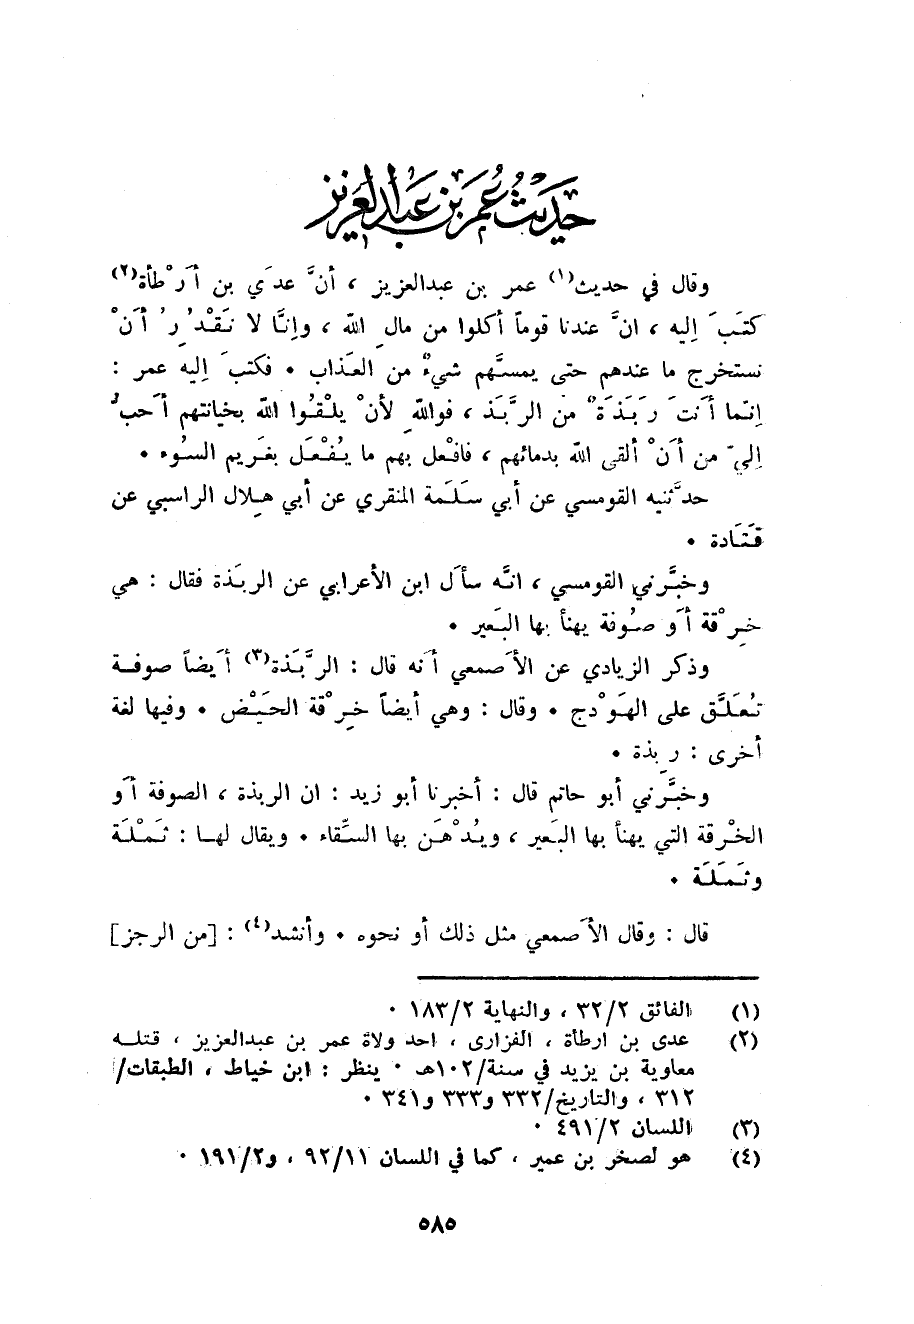 حديث عمر بن عبد العزيز
وقال في حديث(١) عمر بن عبدالعزيز ، أنَّ عدَي بن أَرْطأة(٢)
كتَبَ إليه ، انَّ عندنا قوماً أكلوا من مالِ الله ، وإنَّا لا نَقْدِرُ أَنْ
نستخرج ما عندهم حتى يمسَّهم شيءٌ من العَذاب ٠ فكتبَ إليه عمر :
إنّما أَنتَ رَبَذَةٌ من الرَّبَذ ، فواللهِ لأنْ يلْقُوا اللهَ بخيانتهم أَحبُّ
إليَّ من أَنْ ألقى اللهَ بدمائهم ، فافْعل بهم ما يُفْعَل بغَريم السوُء ٠
حدَّثنيه القومسي عن أبي سَلَمة المنقري عن أبي هلال الراسبي عن
قَتَادة ٠
وخبَّرني القومسي ، انَّه سأَل ابن الأعرابي عن الربَذة فقال : هي
خِرْقة أَو صُوفة يهنأ بها البَعير ٠
وذكر الزيادي عن الأَصمعي أَنه قال : الرَّبَذة(٣) أَيضاً صوفة
تُعَلَّق على الهَوْدج ٠ وقال : وهي أيضاً خِرْقة الحَيْض ٠ وفيها لغة
أخرى : رِبذة ٠
وخبَّرني أبو حاتم قال : أخبرنا أبو زيد : ان الربذة ، الصوفة أَو
الخْرقة التي يهنأ بها البَعير ، ويُدْهَن بها السقّاء ٠ ويقال لها : ثَمْلَة
وثَمَلَة ٠
قال : وقال الأَصمعي مثل ذلك أو نحوه ٠ وأنشد(٤) : [من الرجز]
(١) الفائق ٣٢/٢ ، والنهاية ١٨٣/٢ ٠
(٢) عدى بن ارطأة ، الفزارى ، احد ولاة عمر بن عبدالعزيز ، قتله
معاوية بن يزيد في سنة/١٠٢هـ ٠ ينظر : ابن خياط ، الطبقات/
٣١٢ ، والتاريخ/٣٣٢ و٣٣٣ و٣٤١ ٠
(٣) اللسان ٤٩١/٢ ٠
(٤) هو لصخر بن عمير ، كما في اللسان ٩٢/١١ ، و١٩١/٢ ٠
٥٨٥